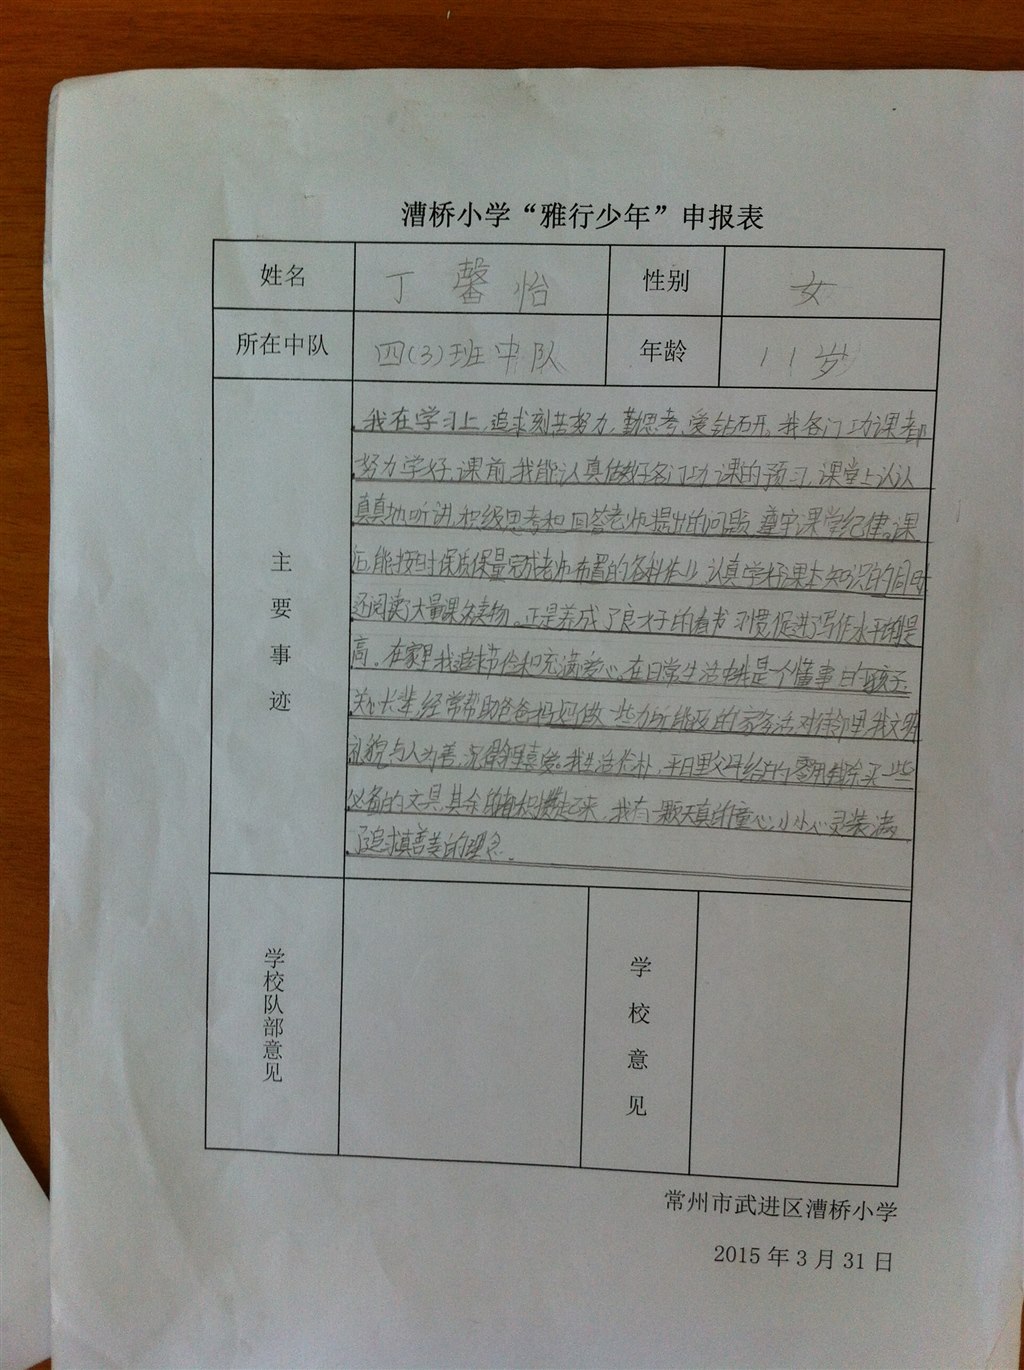 漕桥小学“雅行少年”申报表
姓名 丁馨怡 性别 女
所在中队 四(3)班中队 年龄 11岁
主要事迹
我在学习上,追求刻苦努力,勤思考,爱钻研,我各门功课都
努力学好,课前,我能认真做好各门功课的预习,课堂上认认
真真地听讲,积极思考和回答老师提出的问题,遵守课堂纪律。课
后,能按时保质保量完成老师布置的各科作业,认真学好课本知识的同时
还阅读了大量课外读物。正是养成了良好的看书习惯,促进了写作水平的提
高。在家里我追求节俭和充满爱心,在日常生活中我是个懂事的孩子,
关心长辈,经常帮助爸爸妈妈做一些力所能及的家务活,对待邻里,我文明
礼貌,与人为善,深得邻里喜爱。我生活俭朴,平日里父母给的零用钱除买一些
必备的文具,其余的都积攒起来,我有一颗天真的童心,小小心灵装满
了追求真善美的理念。
学校队部意见
学校意见
常州市武进区漕桥小学
2015年3月31日